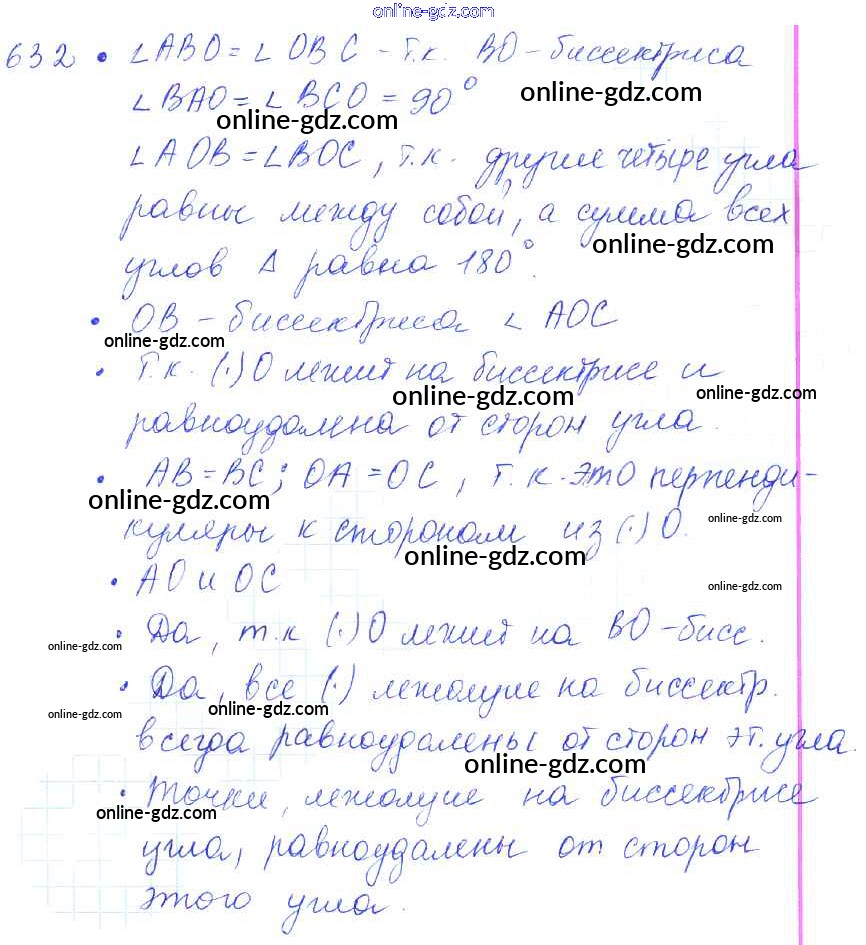 online-gdz.com
632 • ∠ABO = ∠OBC - т.к. BO - биссектриса
∠BAO = ∠BCO = 90° online-gdz.com
online-gdz.com
∠AOB = ∠BOC, т.к. другие четыре угла
равны между собой, а сумма всех
online-gdz.com
углов Δ равна 180°.
• OB - биссектриса ∠AOC
online-gdz.com
• Т.к. (·) O лежит на биссектрисе и
online-gdz.com online-gdz.com
равноудалена от сторон угла.
• AB = BC; OA = OC, т.к. это перпенди-
online-gdz.com
online-gdz.com
куляры к сторонам из (·) O.
online-gdz.com
• AO и OC
online-gdz.com
• Да, т.к (·) O лежит на BO - бисс.
online-gdz.com
• Да, все (·) лежащие на биссектр.
online-gdz.com online-gdz.com
всегда равноудалены от сторон эт. угла.
online-gdz.com
• Точки, лежащие на биссектрисе
online-gdz.com
угла, равноудалены от сторон
этого угла.